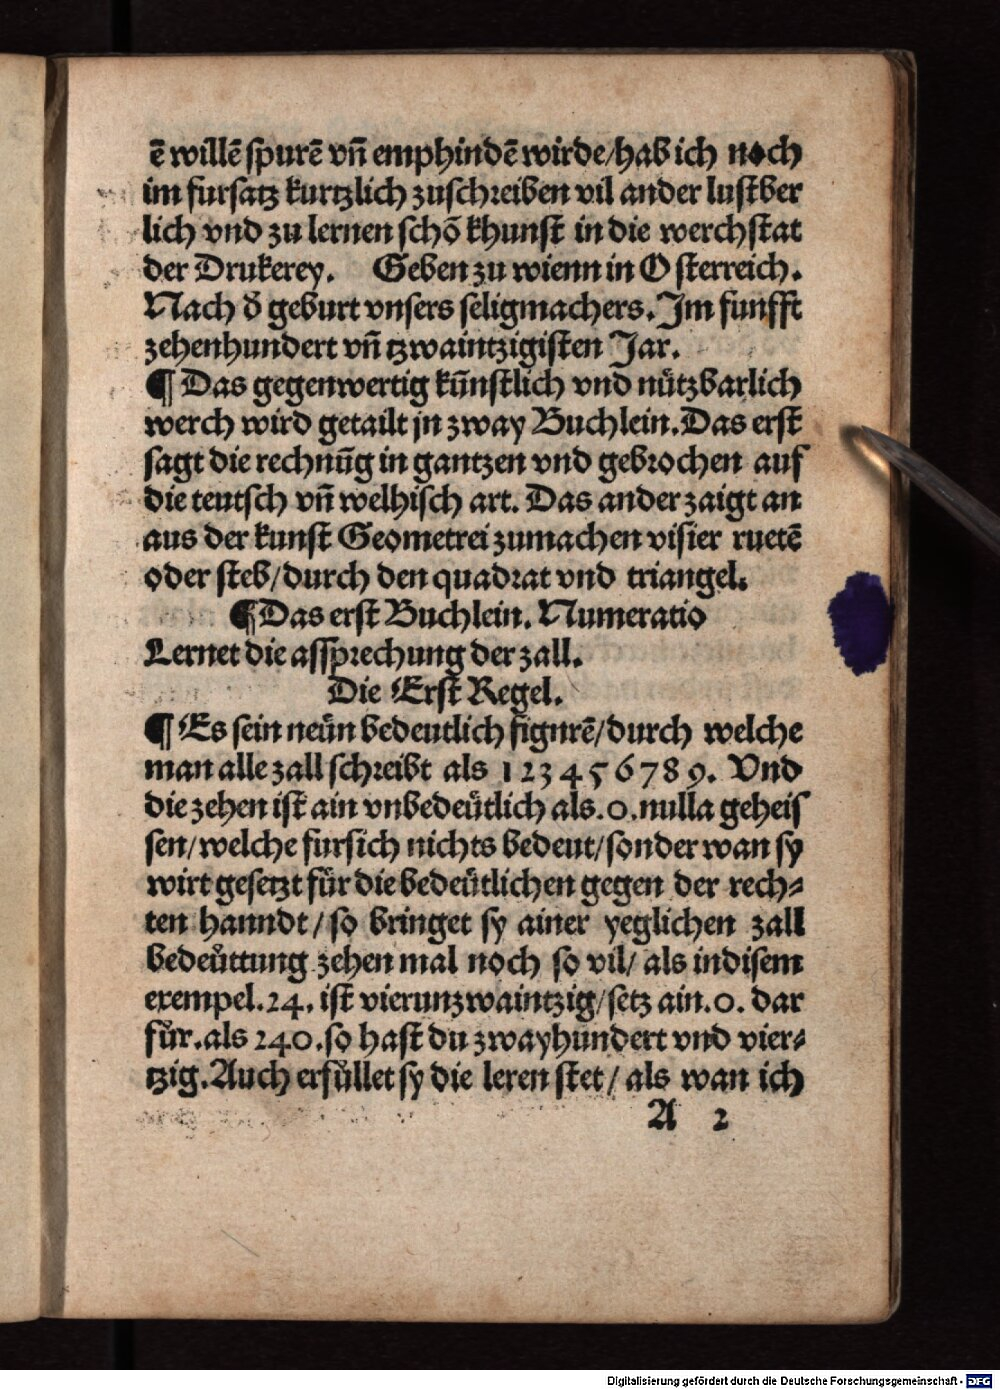 ē willē spurē vn̄ emphindē wirde/hab ich noch
im fursatz kurtzlich zuschreiben vil ander lustber
lich vnd zu lernen schō khunst in die werchstat
der Drukerey. Geben zu wienn in Osterreich.
Nach d̄ geburt vnsers seligmachers. Im funfft
zehenhundert vn̄ tzwaintzigisten Jar.
¶ Das gegenwertig kūnstlich vnd nůtzbarlich
werch wird getailt jn zway Buchlein. Das erst
sagt die rechnūg in gantzen vnd gebrochen auf
die teutsch vn̄ welhisch art. Das ander zaigt an
aus der kunst Geometrei zumachen visier ruetē
oder steb/durch den quadrat vnd triangel.
¶ Das erst Buchlein. Numeratio
Lernet die assprechung der zall.
Die Erst Regel.
¶ Es sein neůn bedeutlich fignrē/durch welche
man alle zall schreibt als 1 2 3 4 5 6 7 8 9. Vnd
die zehen ist ain vnbedeůtlich als .0. nulla geheis
sen/welche fursich nichts bedeut/sonder wan sy
wirt gesetzt fůr die bedeůtlichen gegen der rech⸗
ten hanndt/so bringet sy ainer yeglichen zall
bedeůttung zehen mal noch so vil/als in disem
exempel .24. ist vierunzwaintzig/setz ain .0. dar
fůr. als 240. so hast du zwayhundert vnd vier⸗
tzig. Auch erfůllet sy die leren stet/als wan ich
A 2
Digitalisierung gefördert durch die Deutsche Forschungsgemeinschaft - DFG